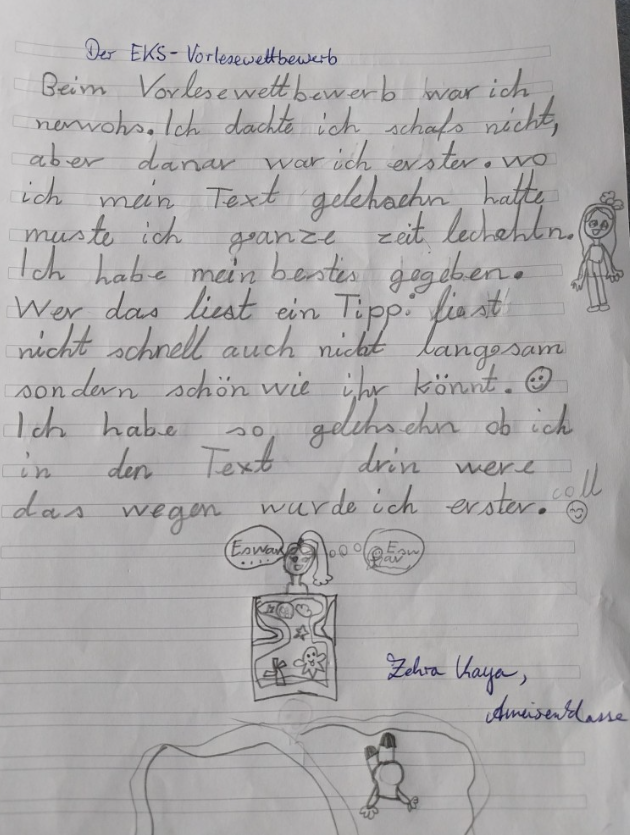 Der EKS-Vorlesewettbewerb
Beim Vorlesewettbewerb war ich
nerwohs. Ich dachte ich schafs nicht,
aber danar war ich erster. wo
ich mein Text gelehsehn hatte
muste ich ganze zeit lechehln.
Ich habe mein bestes gegeben.
Wer das liest ein Tipp: liest
nicht schnell auch nicht langesam
sondern schön wie ihr könnt.
Ich habe so gelehsehn ob ich
in den Text drin were
das wegen wurde ich erster. coll
Es war
Es war
Zehra Kaya,
Ameisenklasse